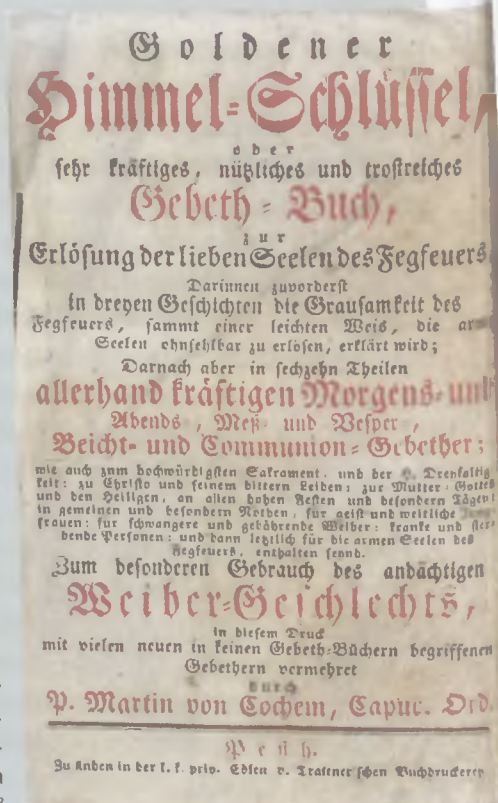 Goldener
Himmel-Schlüssel,
oder
sehr kräftiges, nützliches und trostreiches
Gebeth-Buch,
zur
Erlösung der lieben Seelen des Fegfeuers
Darinnen zuvorderst
in dreyen Geschichten die Grausamkeit des
Fegfeuers, sammt einer leichten Weis, die
Seelen ohnfehlbar zu erlösen, erklärt wird;
Darnach aber in sechzehn Theilen
allerhand kräftigen Morgens- und
Abends, Meß- und Vesper,
Beicht- und Communion-Gebether;
wie auch zum hochwürdigsten Sakrament, und der H. Dreyfaltig
keit: zu Christo und seinem bittern Leiden: zur Mutter Gottes
und den Heiligen, an allen hohen Festen und besondern Tägen:
in gemeinen und besondern Nöthen, für geist und weltliche
frauen: für schwangere und gebährende Weiber: kranke und ster-
bende Personen: und dann letzlich für die armen Seelen des
Fegfeuers, enthalten seynd.
Zum besonderen Gebrauch des andächtigen
Weiber-Geschlechts,
in diesem Druck
mit vielen neuen in keinen Gebeth-Büchern begriffenen
Gebethern vermehret
durch
P. Martin von Cochem, Capuc. Ord.
Pesth.
Zu finden in der k. k. priv. Edlen v. Trattner'schen Buchdruckerey